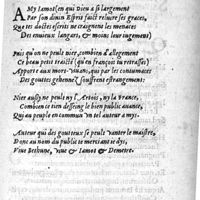 AMy Iamot (en qui Dieu a si largement
Par son diuin Esprit faict reluire ses graces,
Que tes doctes escrits ne craignent les menaces
Des enuieux langars, & moins leur iugement)
Puis qu'on ne peut nier, combien d'allegement
Ce beau petit traicté (qui en françois tu retrasses)
Apporte aux mortz-viuans, qui par les contumaces
Des gouttes gehennez souffrent estrangement:
Nier aussi ne peut ny l'Artois, ny la France,
Combien ce tien desseing le bien public auance,
Qui au peuple en commun vn tel auteur a mys:
Auteur qui des goutteux se peult vanter le maistre,
Donc au nom du public te merciant ie dy,
Viue Bethune, viue & Iamot & Demetre.